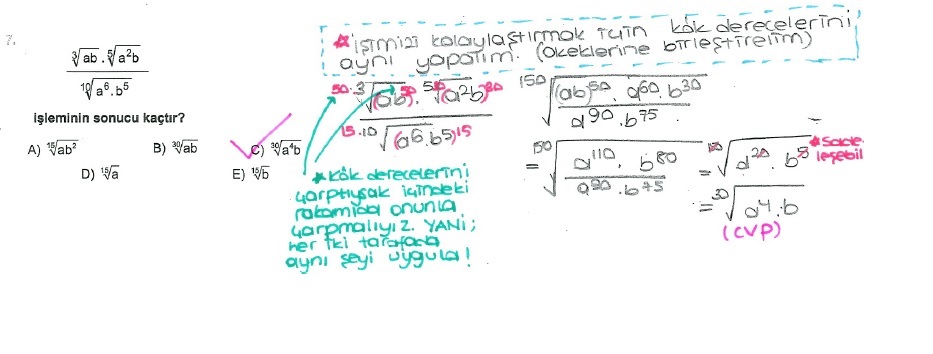 7.
∛ab . ⁵√a²b
¹⁰√a⁶.b⁵
işleminin sonucu kaçtır?
A) ¹⁵√ab² B) ³⁰√ab C) ³⁰√a⁴b
D) ¹⁵√a E) ¹⁵√b
*işimizi kolaylaştırmak için kök derecelerini
aynı yapalım. (okeklerine birleştirelim)
50·3√(ab)50 . 5·30√(a²b)30
15·10√(a6.b5)15
150√(ab)50 . a60.b30
a90.b75
= 150√a110 . b80
a90.b75
= 150√a20.b5 *Sadeleşebil
= 30√a4.b
(CVP)
*kök derecelerini
çarptıysak içindeki
rakamıda onunla
çarpmalıyız. YANİ;
her iki tarafada
aynı şeyi uygula!